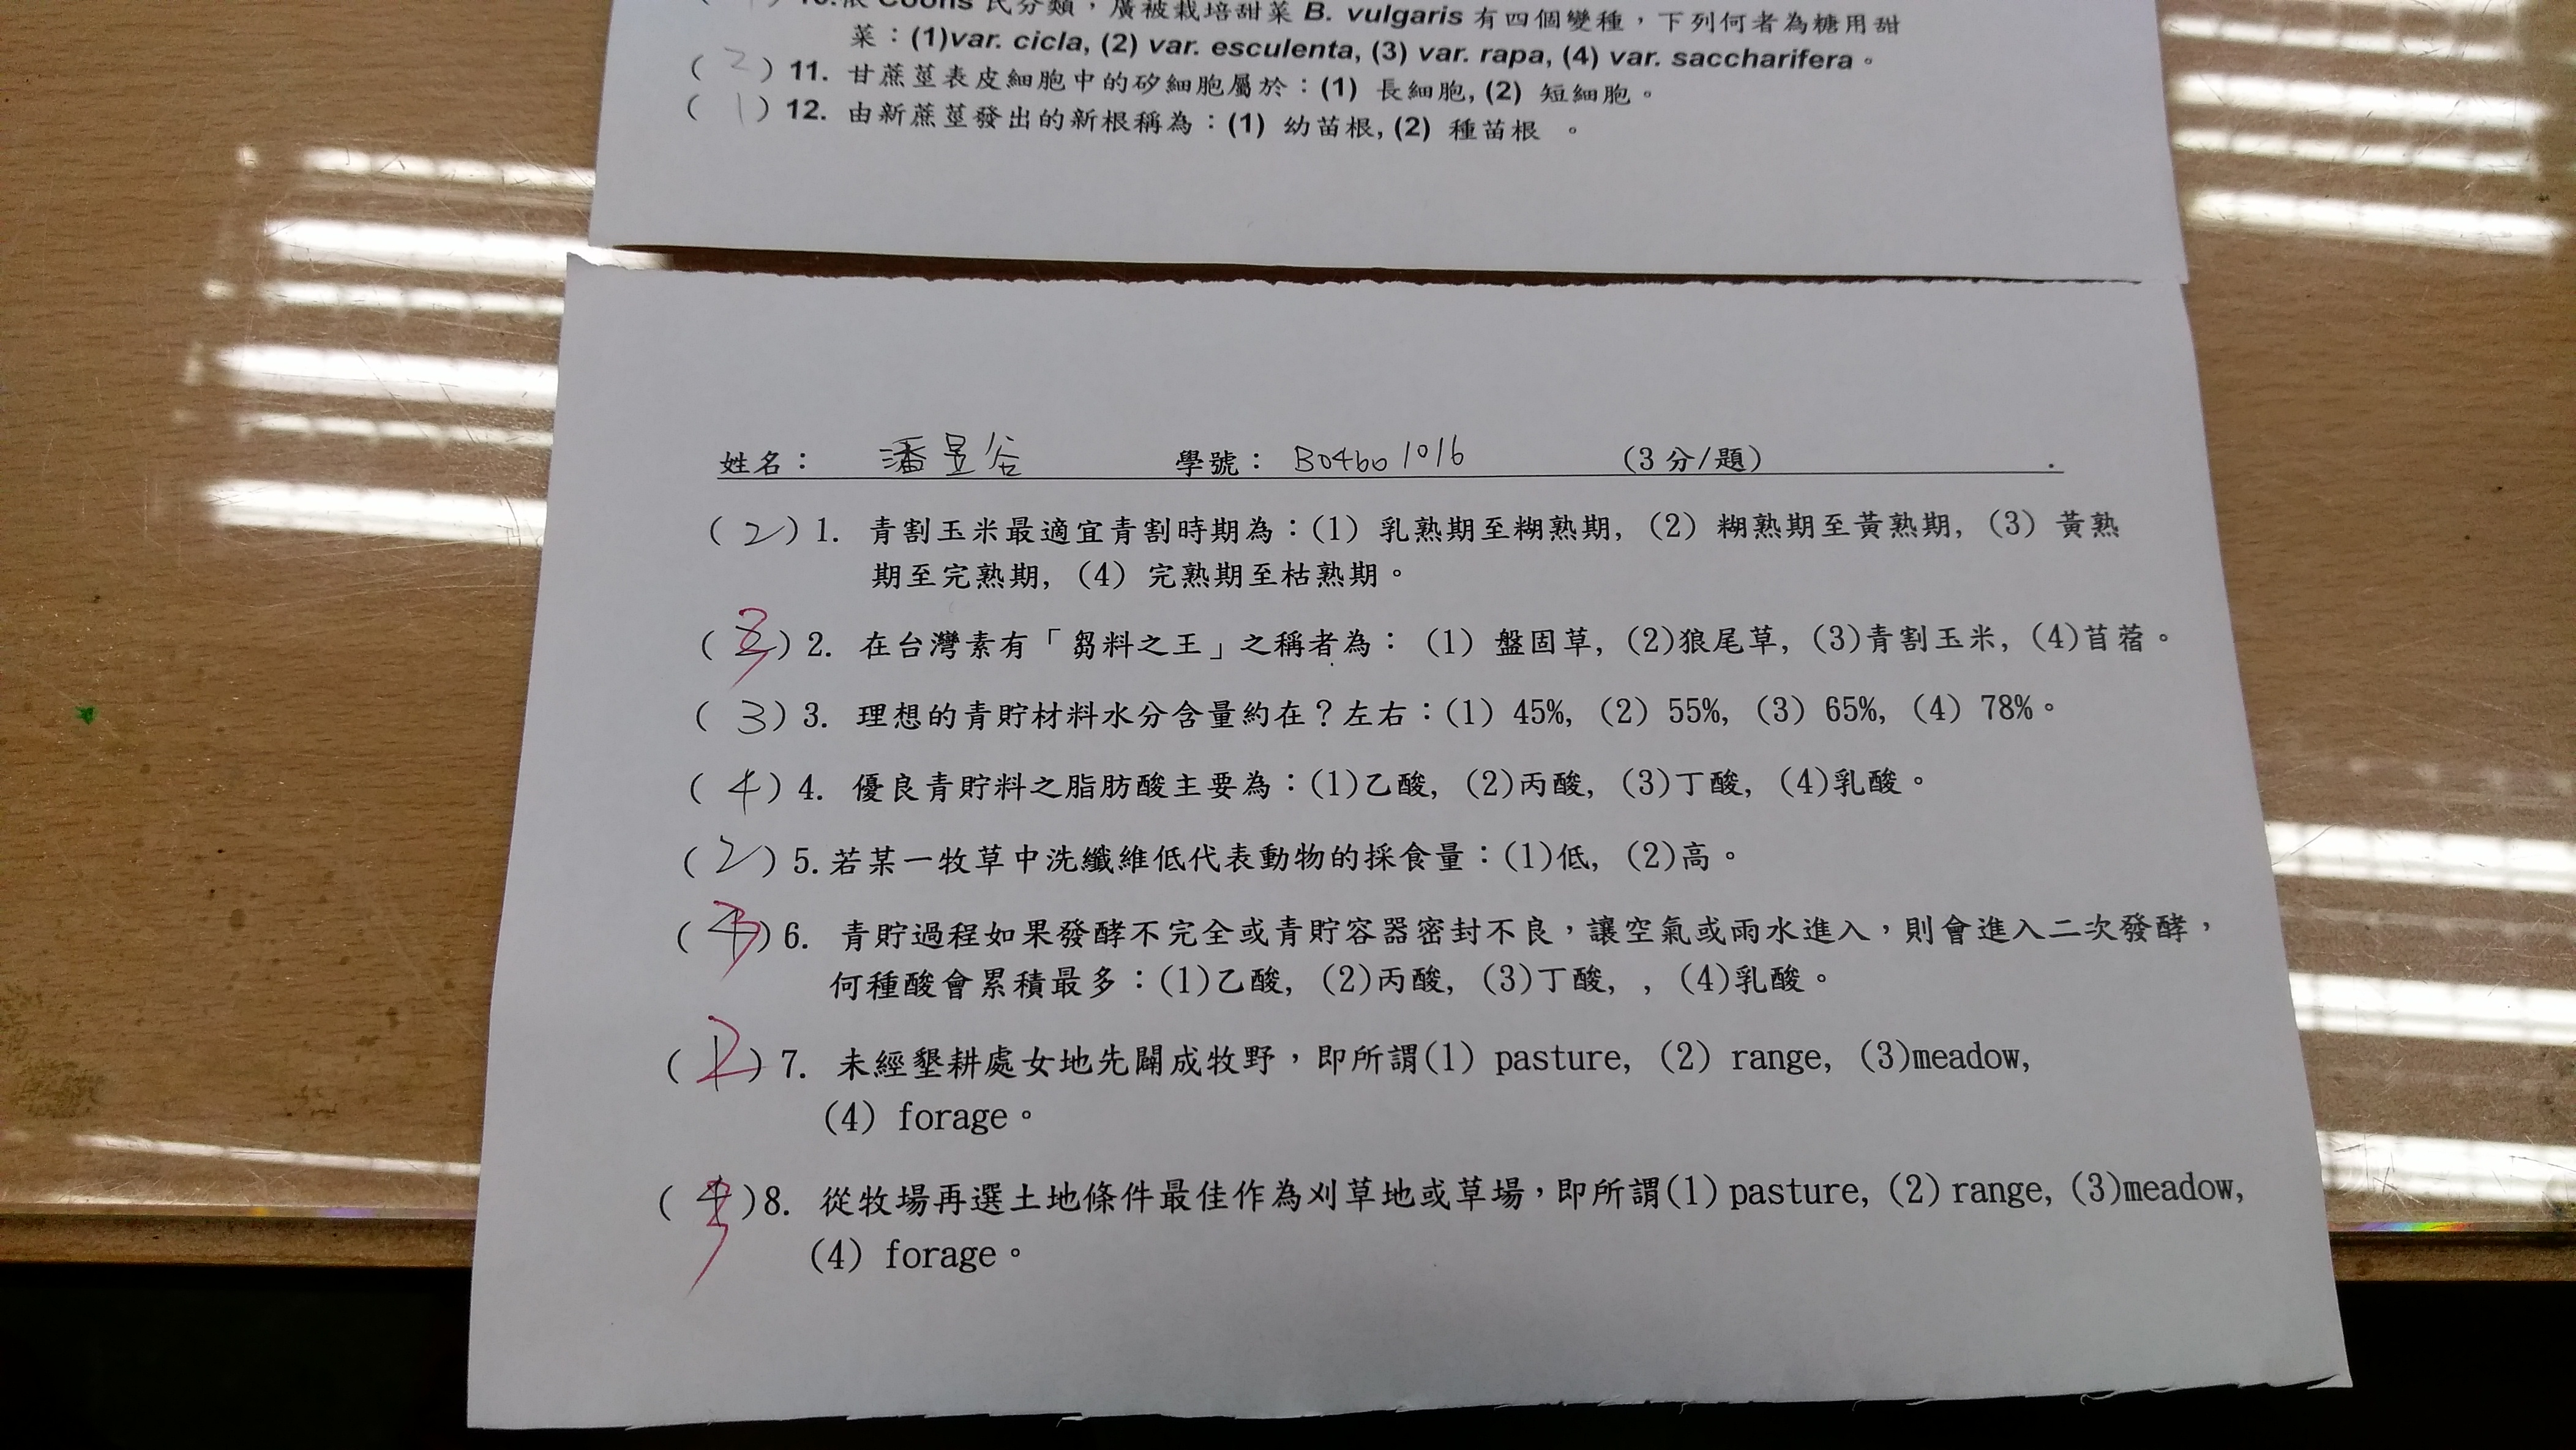 10.依 Coons 氏分類，廣被栽培甜菜 B. vulgaris 有四個變種，下列何者為糖用甜
菜：(1)var. cicla, (2) var. esculenta, (3) var. rapa, (4) var. saccharifera。
( 2 ) 11. 甘蔗莖表皮細胞中的矽細胞屬於：(1) 長細胞, (2) 短細胞。
( 1 ) 12. 由新蔗莖發出的新根稱為：(1) 幼苗根, (2) 種苗根 。
姓名： 潘昱谷 學號： B04601016 (3 分/題) .
( 2 ) 1. 青割玉米最適宜青割時期為：(1) 乳熟期至糊熟期, (2) 糊熟期至黃熟期, (3) 黃熟
期至完熟期, (4) 完熟期至枯熟期。
( 3 ) 2. 在台灣素有「芻料之王」之稱者為： (1) 盤固草, (2)狼尾草, (3)青割玉米, (4)苜蓿。
( 3 ) 3. 理想的青貯材料水分含量約在？左右：(1) 45%, (2) 55%, (3) 65%, (4) 78%。
( 4 ) 4. 優良青貯料之脂肪酸主要為：(1)乙酸, (2)丙酸, (3)丁酸, (4)乳酸。
( 2 ) 5.若某一牧草中洗纖維低代表動物的採食量：(1)低, (2)高。
( 4 3 ) 6. 青貯過程如果發酵不完全或青貯容器密封不良，讓空氣或雨水進入，則會進入二次發酵，
何種酸會累積最多：(1)乙酸, (2)丙酸, (3)丁酸, , (4)乳酸。
( 1 2 ) 7. 未經墾耕處女地先闢成牧野，即所謂(1) pasture, (2) range, (3)meadow,
(4) forage。
( 4 3 )8. 從牧場再選土地條件最佳作為刈草地或草場，即所謂(1) pasture, (2) range, (3)meadow,
(4) forage。